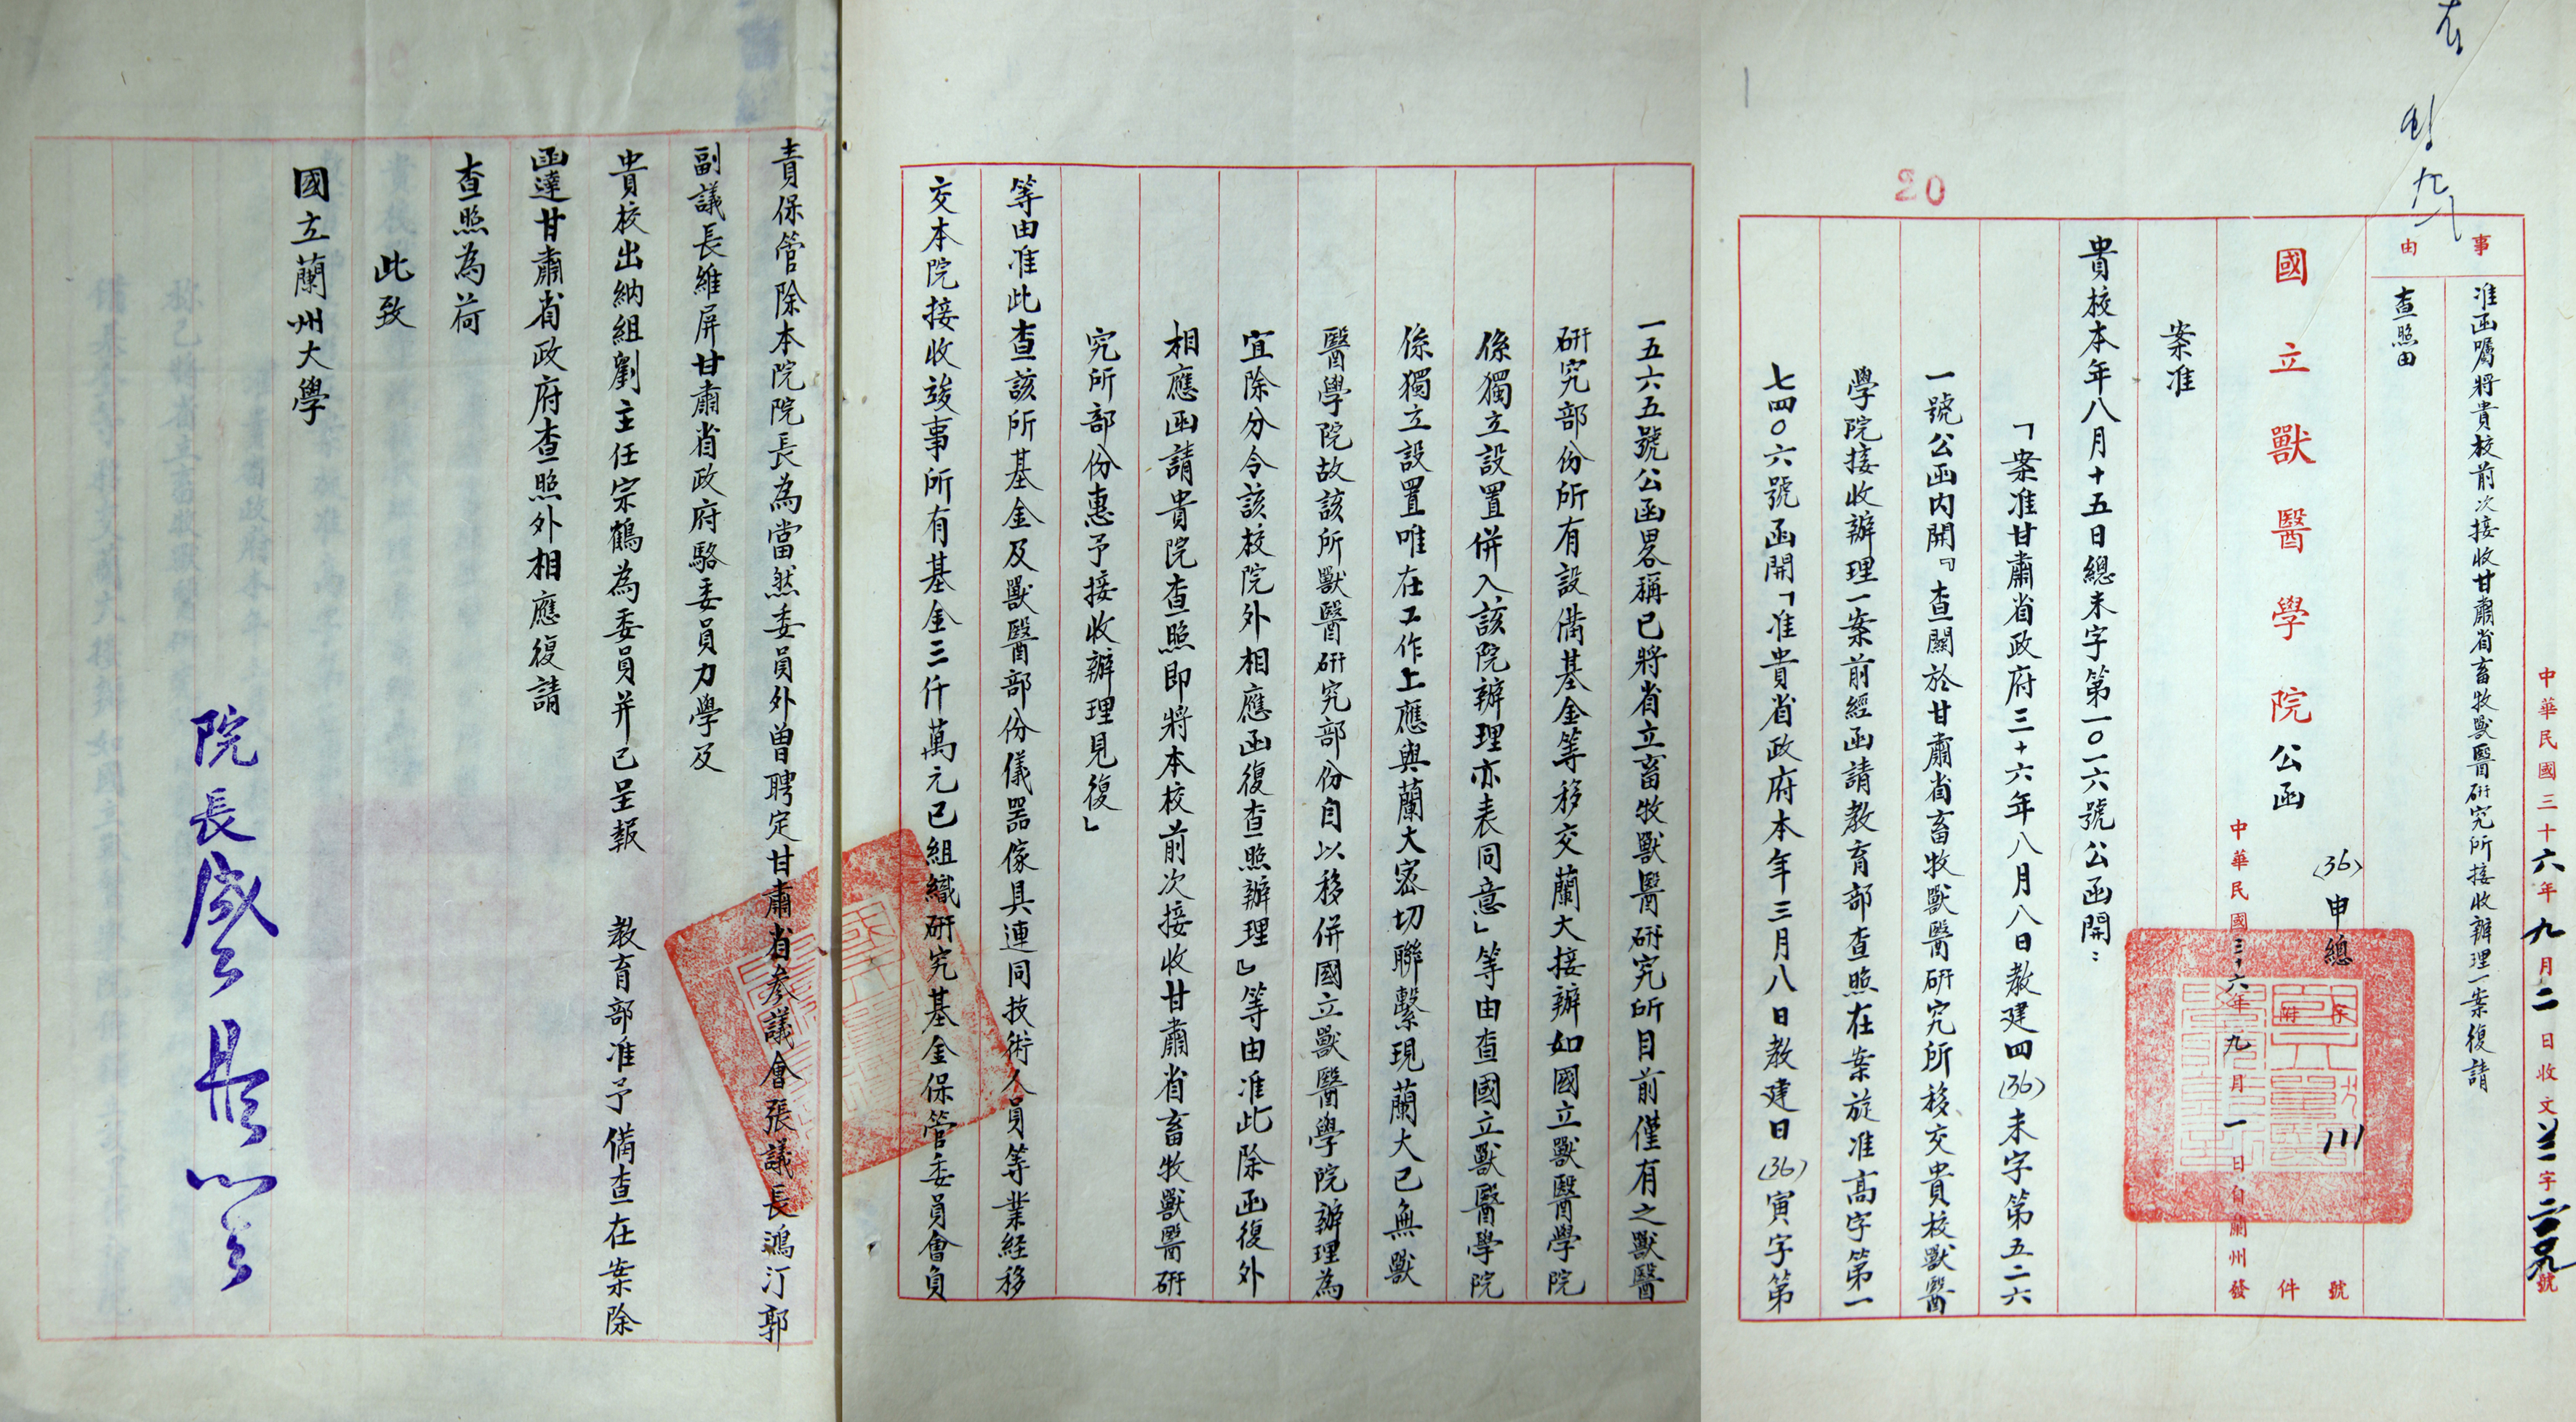 中華民國三十六年九月二日收文蘭字二〇九號
事由
准函囑將貴校前次接收甘肅省畜牧獸醫研究所接收辦理一案復請
查照由
國立獸醫學院公函
(36)申總字111號
附件
中華民國三十六年九月一日自蘭州發
案准
貴校本年八月十五日總未字第一〇一六號公函開：
「案准甘肅省政府三十六年八月八日教建四(36)未字第五二六
一號公函內開『查關於甘肅省畜牧獸醫研究所移交貴校獸醫
學院接收辦理一案前經函請教育部查照在案旋准高字第一
七四〇六號函開「准貴省政府本年三月八日教建日(36)寅字第
20
一五六五號公函畧稱已將省立畜牧獸醫研究所目前僅有之獸醫
研究部份所有設備基金等移交蘭大接辦如國立獸醫學院
係獨立設置併入該院辦理亦表同意」等由查國立獸醫學院
係獨立設置唯在工作上應與蘭大密切聯繫現蘭大已無獸
醫學院故該所獸醫研究部份自以移併國立獸醫學院辦理為
宜除分令該校院外相應函復查照辦理』等由准此除函復外
相應函請貴院查照即將本校前次接收甘肅省畜牧獸醫研
究所部份惠予接收辦理見復」
等由准此查該所基金及獸醫部份儀器傢具連同技術人員等業經移
交本院接收竣事所有基金三仟萬元已組織研究基金保管委員會負
責保管除本院院長為當然委員外曾聘定甘肅省參議會張議長鴻汀郭
副議長維屏甘肅省政府駱委員力學及
貴校出納組劉主任宗鶴為委員并已呈報 教育部准予備查在案除
函達甘肅省政府查照外相應復請
查照為荷
此致
國立蘭州大學
院長盛彤笙